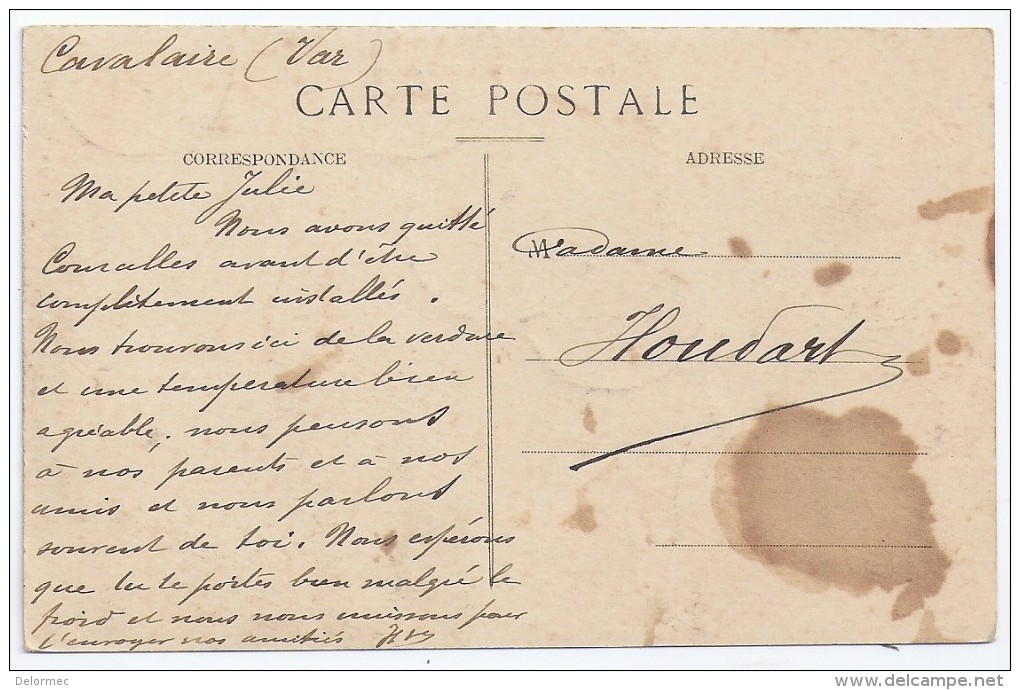 Cavalaire (Var)
CARTE POSTALE
CORRESPONDANCE
ADRESSE
Ma petite Julie
Nous avons quitté
Courcelles avant d'être
complètement installés.
Nous trouvons ici de la verdure
et une température bien
agréable, nous pensons
à nos parents et à nos
amis et nous parlons
souvent de toi. Nous espérons
que tu te portes bien malgré le
froid et nous nous unissons pour
t'envoyer nos amitiés
Madame
Houdart
Delormec
www.delcampe.net